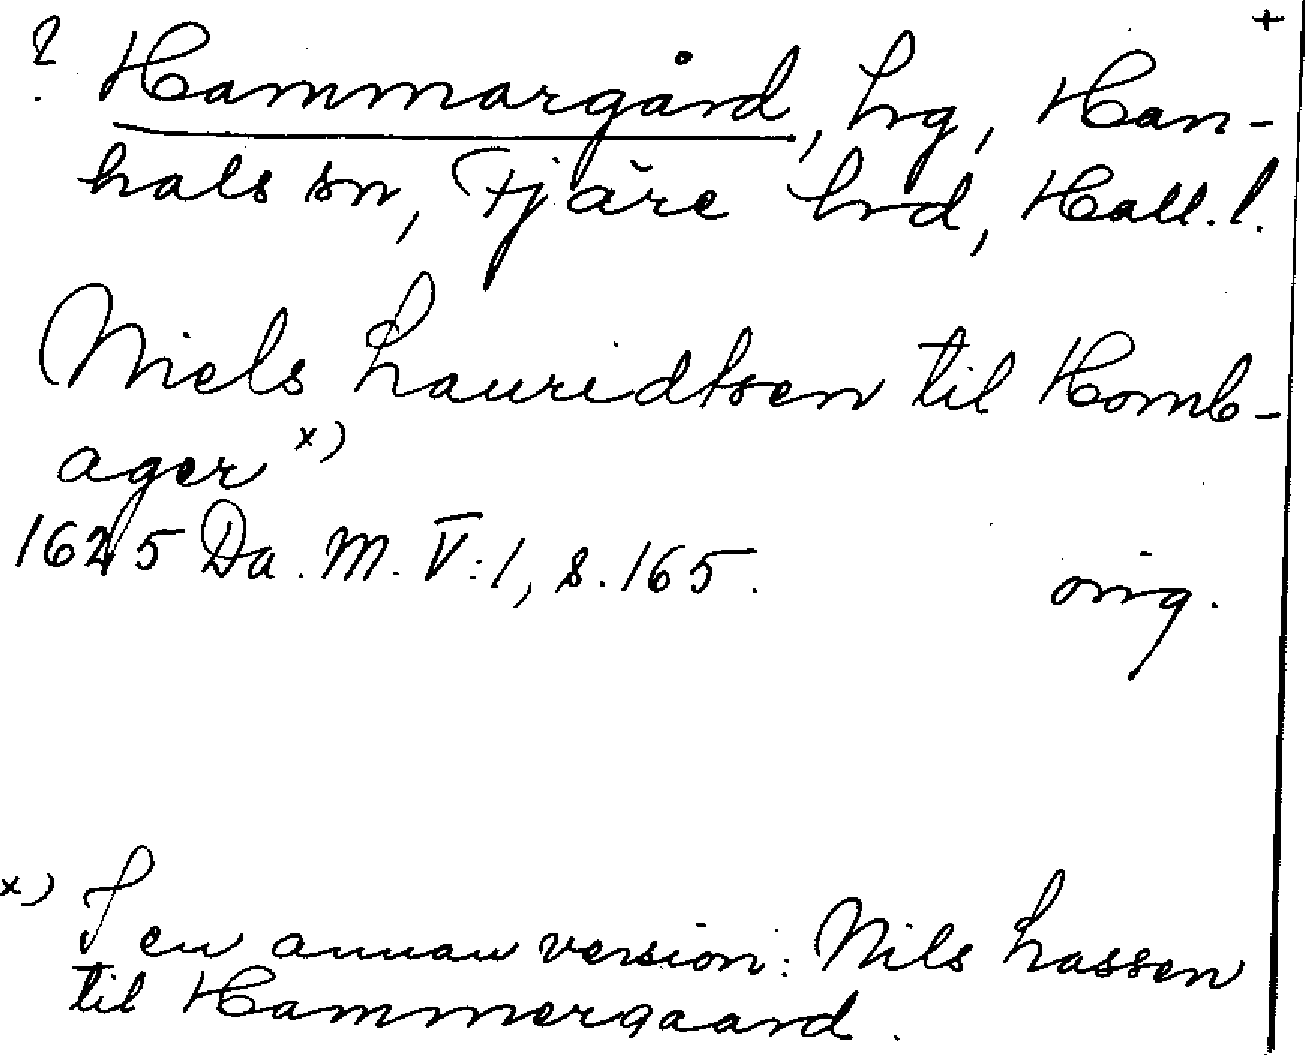 ? Hammargård, hrg, Han- +
hals sn, Fjäre hrd, Hall. l.
Niels Lauridtsen til Homb-
ager x)
1625 Da. M. V:1, s. 165. orig.
x) I en annan version: Nils Lassen
til Hammergaard.